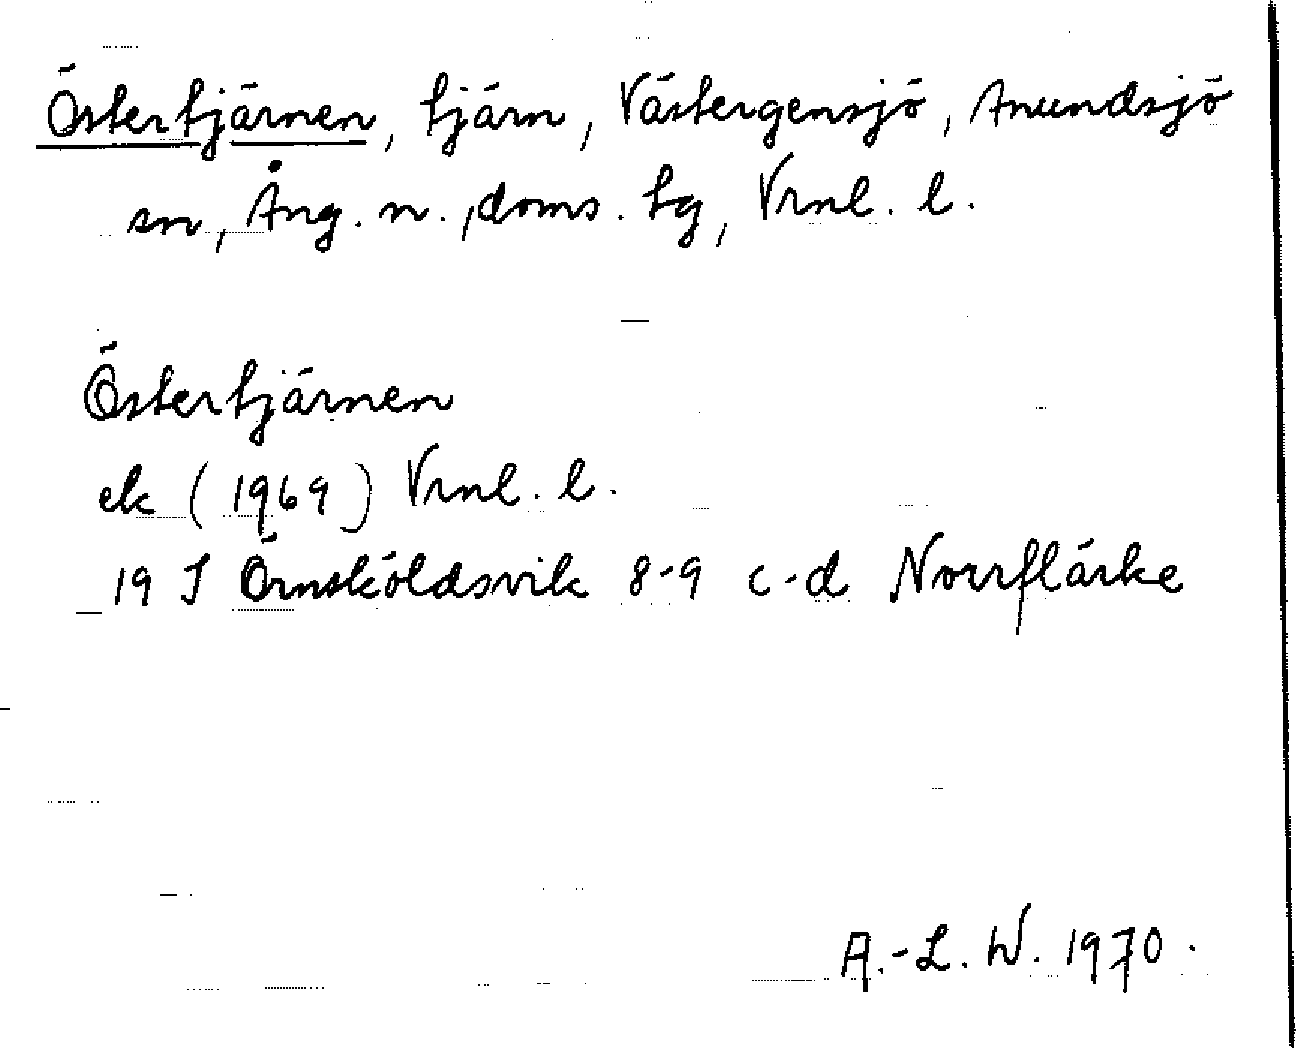 Östertjärnen, tjärn, Västergensjö, Anundsjö
sn, Ång. n., doms. tg, Vrnl. l.
Östertjärnen
ek (1969) Vrnl. l.
19 J Örnsköldsvik 8-9 c-d Norrflärke
A.-L. W. 1970.